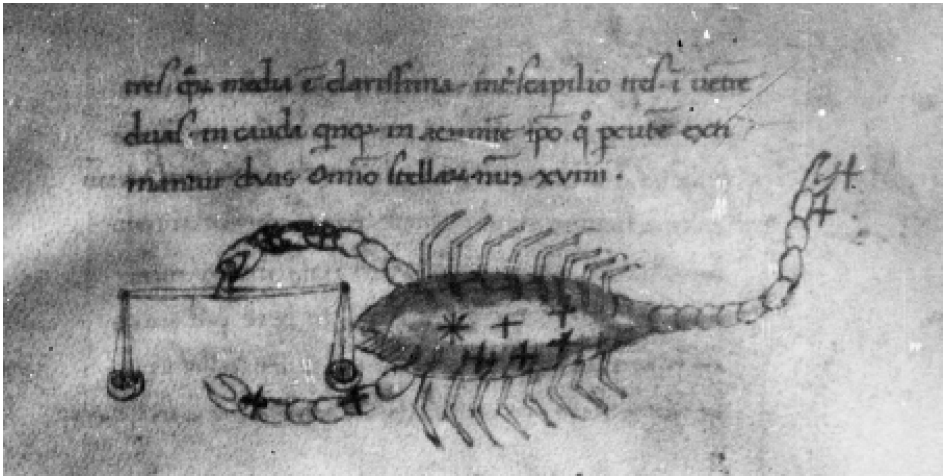 tres. qꝛ̃ media ẽ clarissima. int̃ scapilio tres. ĩ uẽtre
duas. in cauda qnq; in acumĩe ip̃o q̊ pcutẽ exti
mantur duas Om̃o stellaꝝ. nũs xviiii.